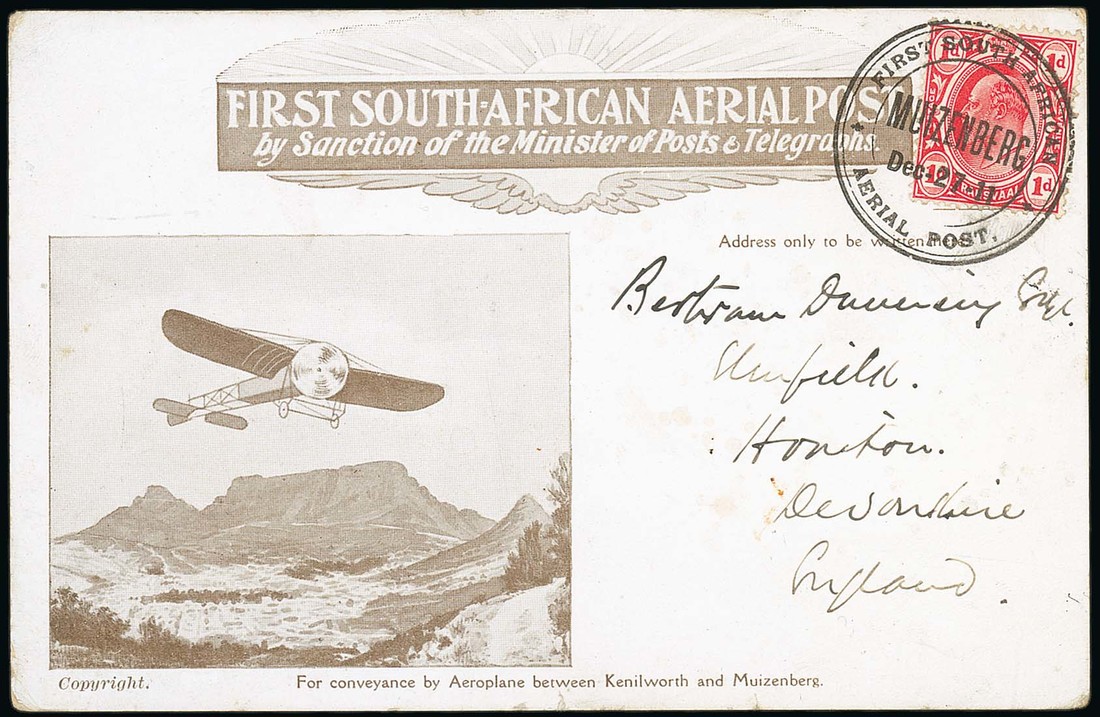 FIRST SOUTH-AFRICAN AERIAL POST
by Sanction of the Minister of Posts & Telegraphs.
FIRST SOUTH AFRICAN
MUIZENBERG
Dec. 27. 11
AERIAL POST.
1d 1d
1d TRANSVAAL 1d
Address only to be written here.
Bertram
Esq.
Honiton.
Devonshire
England.
Copyright.
For conveyance by Aeroplane between Kenilworth and Muizenberg.